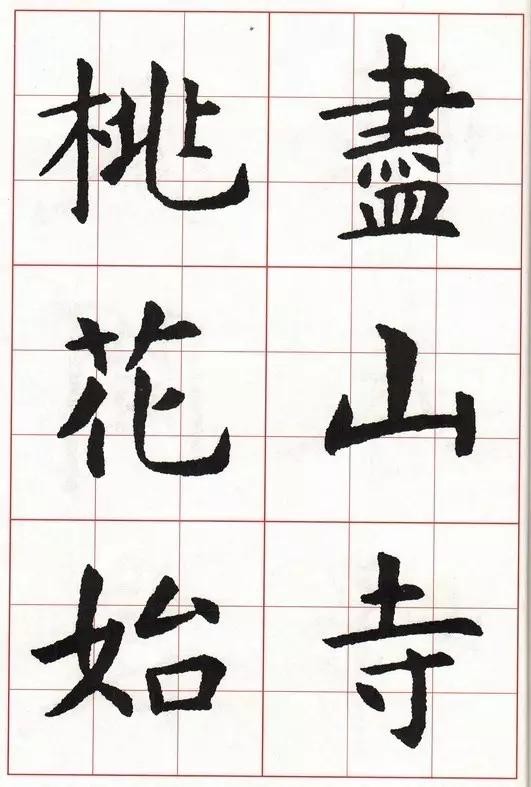 盡山寺
桃花始